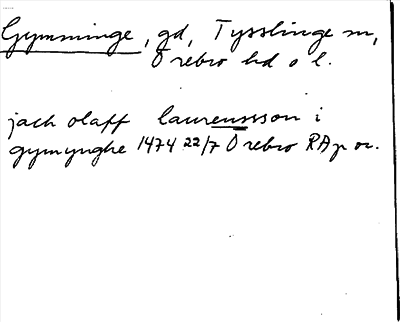 Gymminge, gd, Tysslinge sn,
Örebro hd o l.
jach olaff laurensson i
gymynghe 1474 22/7 Örebro RAp or.